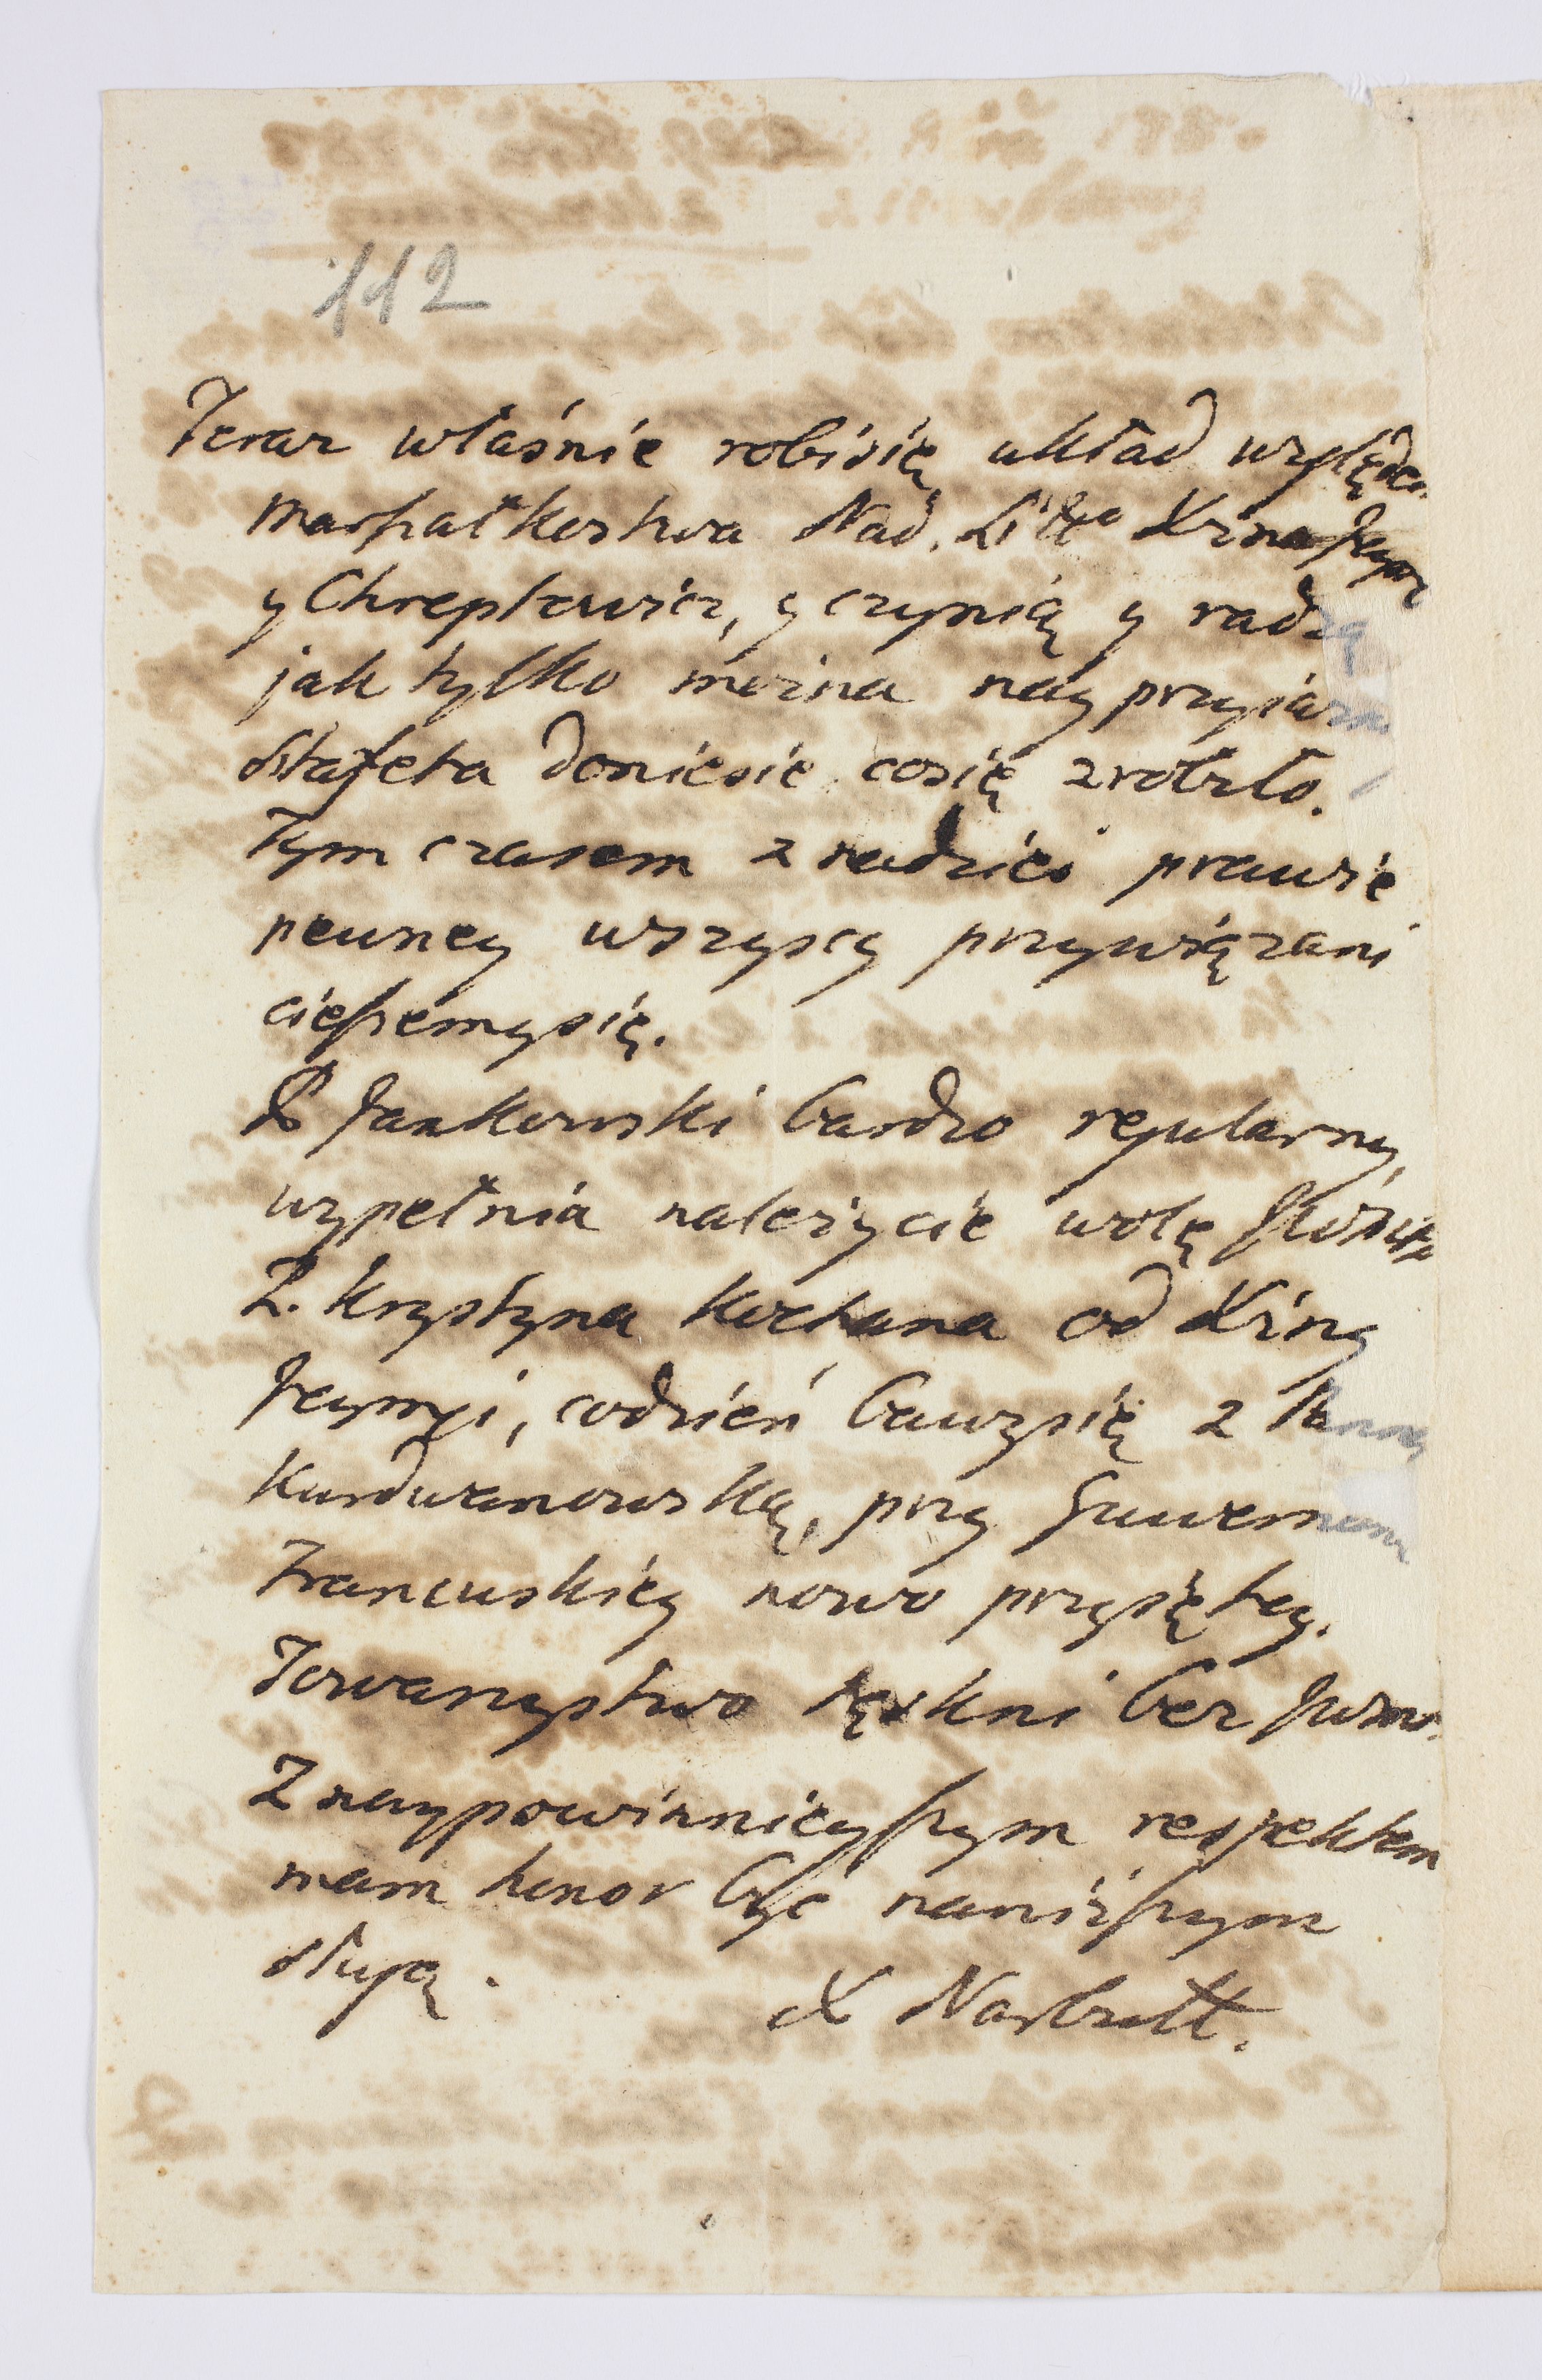 112
Teraz właśnie robisię układ względem
Marszałkostwa Nad. Litto Xżna Jeymć
y Chreptowicz, y czynią y radzą
jak tylko można nayprzyiaźn.
sztafeta doniesie cosię zrobiło.
Tym czasem z nadziei prawie
pewney wszyscy przywiązani
cieszemysię.
P Jankowski bardzo regularny,
wypełnia należycie wolę
P. Krystyna kochana od Xżny
Jeymći, codzień bawysię z Panną
Kurdwanowską, przy Guwernan
Francuskiey nowo przyiętey.
Towarzystwo tęskni bez
Z naypowinnieyszym respektem
mam honor być naniższym
sługą.
X Narbutt.